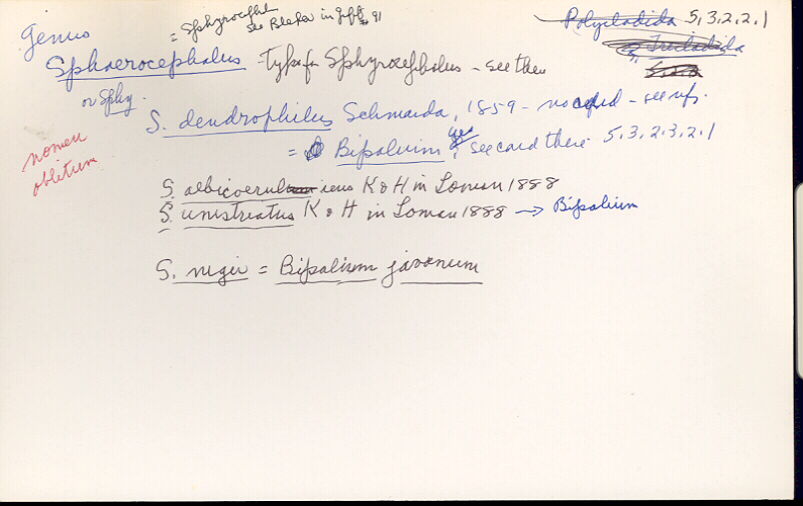 Genus
= Sphyrocephal
see Bleker in
91
Polycladida 5.3.2.2.1
Tricladida
Sphaerocephalus = Typo for Sphyrocephalus - see there
or Sphy.
S. dendrophilus Schmarda, 1859 - no card - see refs.
= Bipalium, yes see card there 5.3.2.3.2.1
nomen
oblitum
S. albicoeruleus K & H in Loman 1888
S. unistriatus K & H in Loman 1888 → Bipalium
S. niger = Bipalium javanum